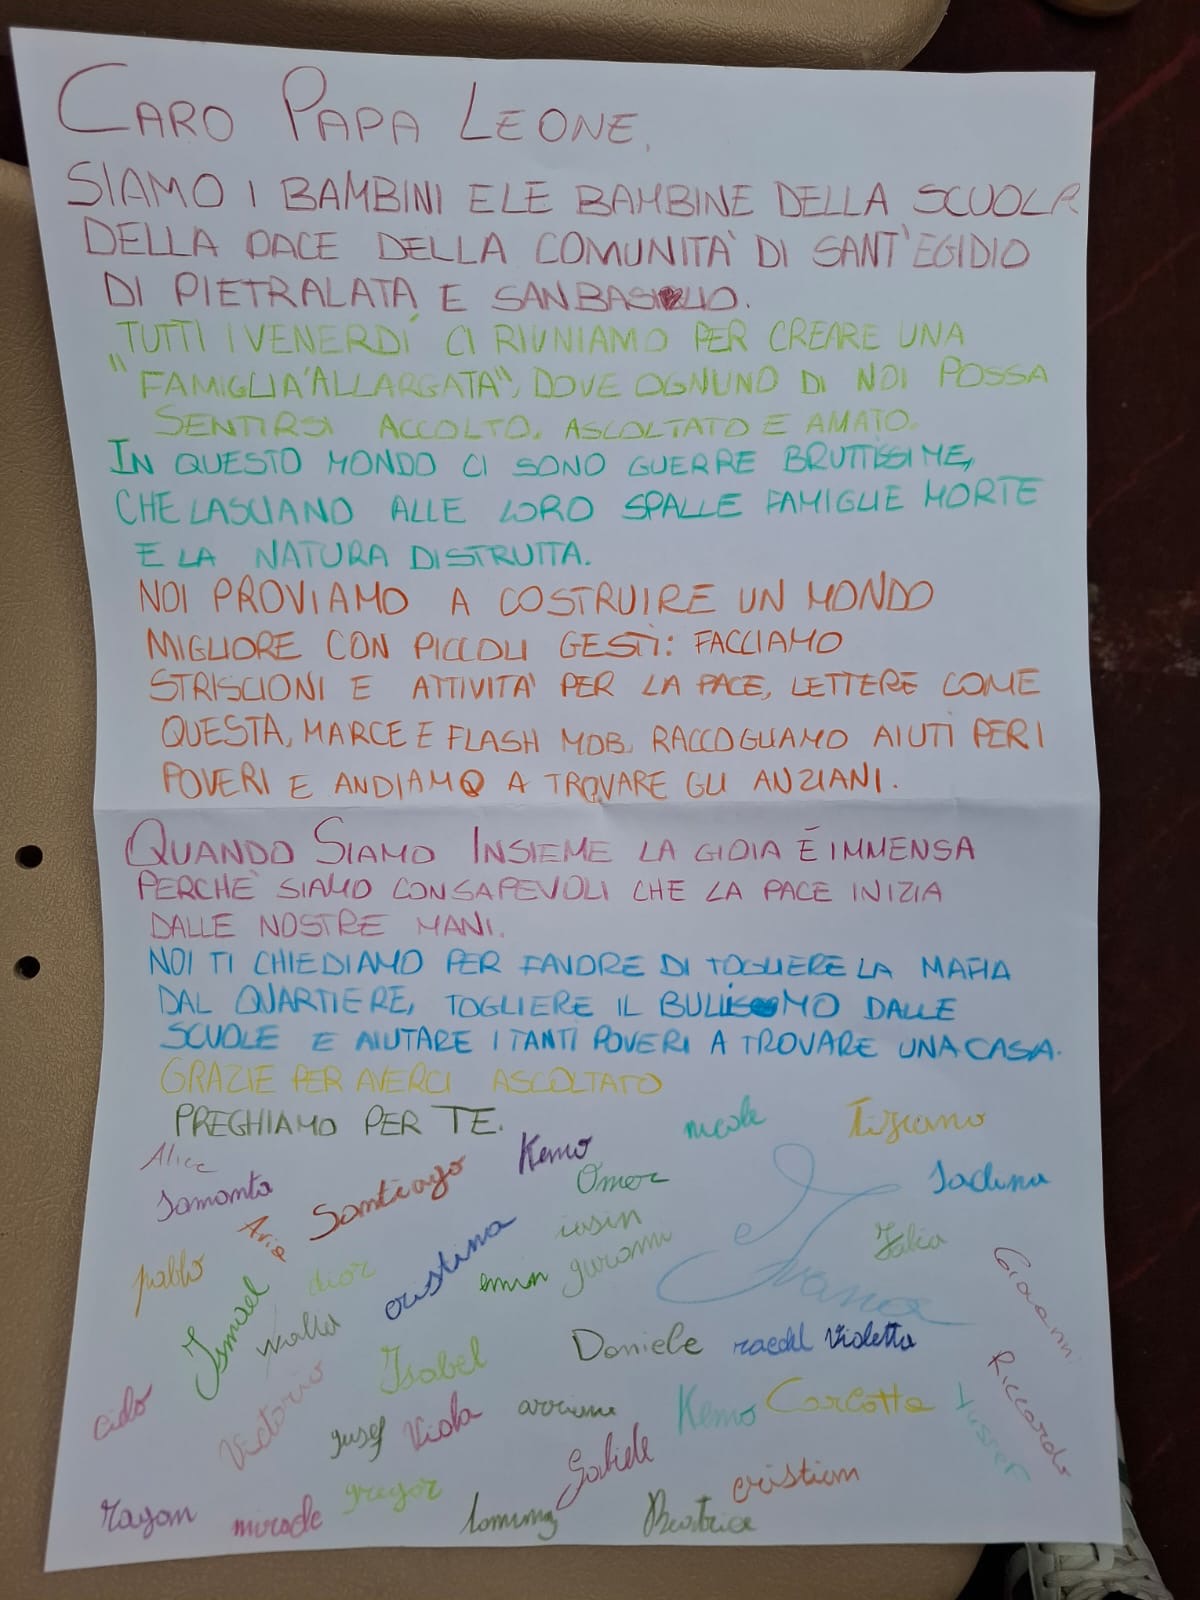 CARO PAPA LEONE,
SIAMO I BAMBINI E LE BAMBINE DELLA SCUOLA
DELLA PACE DELLA COMUNITA' DI SANT'EGIDIO
DI PIETRALATA E SAN BASILIO.
TUTTI I VENERDÍ CI RIUNIAMO PER CREARE UNA
"FAMIGLIA ALLARGATA", DOVE OGNUNO DI NOI POSSA
SENTIRSI ACCOLTO, ASCOLTATO E AMATO.
IN QUESTO MONDO CI SONO GUERRE BRUTTISSIME,
CHE LASCIANO ALLE LORO SPALLE FAMIGLIE MORTE
E LA NATURA DISTRUTTA.
NOI PROVIAMO A COSTRUIRE UN MONDO
MIGLIORE CON PICCOLI GESTI: FACCIAMO
STRISCIONI E ATTIVITA' PER LA PACE, LETTERE COME
QUESTA, MARCE E FLASH MOB. RACCOGLIAMO AIUTI PER I
POVERI E ANDIAMO A TROVARE GLI ANZIANI.
QUANDO SIAMO INSIEME LA GIOIA È IMMENSA
PERCHE' SIAMO CONSAPEVOLI CHE LA PACE INIZIA
DALLE NOSTRE MANI.
NOI TI CHIEDIAMO PER FAVORE DI TOGLIERE LA MAFIA
DAL QUARTIERE, TOGLIERE IL BULLISMO DALLE
SCUOLE E AIUTARE I TANTI POVERI A TROVARE UNA CASA.
GRAZIE PER AVERCI ASCOLTATO
PREGHIAMO PER TE.
Alice
Kemo
nicole
Tiziano
Samanta
Santiago
Omer
Sadina
iasin
pablo
dior
cristina
emin
Ivana
Giovanni
Ismael
Isabel
Daniele
raedel
Violetta
Victorio
yusef
Viola
Kemo
Carlotta
Riccardo
Gabriele
Rayan
gregor
cristian
Beatrice